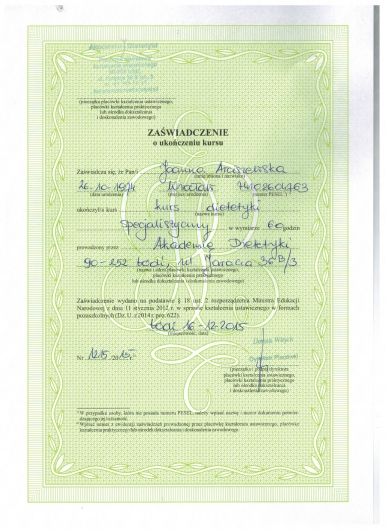 (pieczątka placówki kształcenia ustawicznego,
placówki kształcenia praktycznego
lub ośrodka dokształcania
i doskonalenia zawodowego)
ZAŚWIADCZENIE
o ukończeniu kursu
Zaświadcza się, że Pan/i Joanna
(imię/imiona i nazwisko)
26.10.1974
(data urodzenia) (miejsce urodzenia) (numer PESEL)
ukończył/a kurs kurs dietetyki
(nazwa kursu)
specjalistyczny w wymiarze 60 godzin
prowadzony przez Akademię Dietetyki
90-252 Łódź, ul Jaracza 36B/3
(nazwa i adres placówki kształcenia ustawicznego,
placówki kształcenia praktycznego
lub ośrodka dokształcania i doskonalenia zawodowego)
Zaświadczenie wydano na podstawie § 18 ust. 2 rozporządzenia Ministra Edukacji
Narodowej z dnia 11 stycznia 2012 r. w sprawie kształcenia ustawicznego w formach
pozaszkolnych (Dz. U. z 2014 r. poz. 622).
Łódź 16-12-2015
(miejscowość, data)
Nr 1215/2015
Dyrektor Placówki
(pieczątka i podpis dyrektora
placówki kształcenia ustawicznego,
placówki kształcenia praktycznego
lub ośrodka dokształcania
i doskonalenia zawodowego)
¹ W przypadku osoby, która nie posiada numeru PESEL, należy wpisać nazwę i numer dokumentu potwier-
dzającego jej tożsamość.